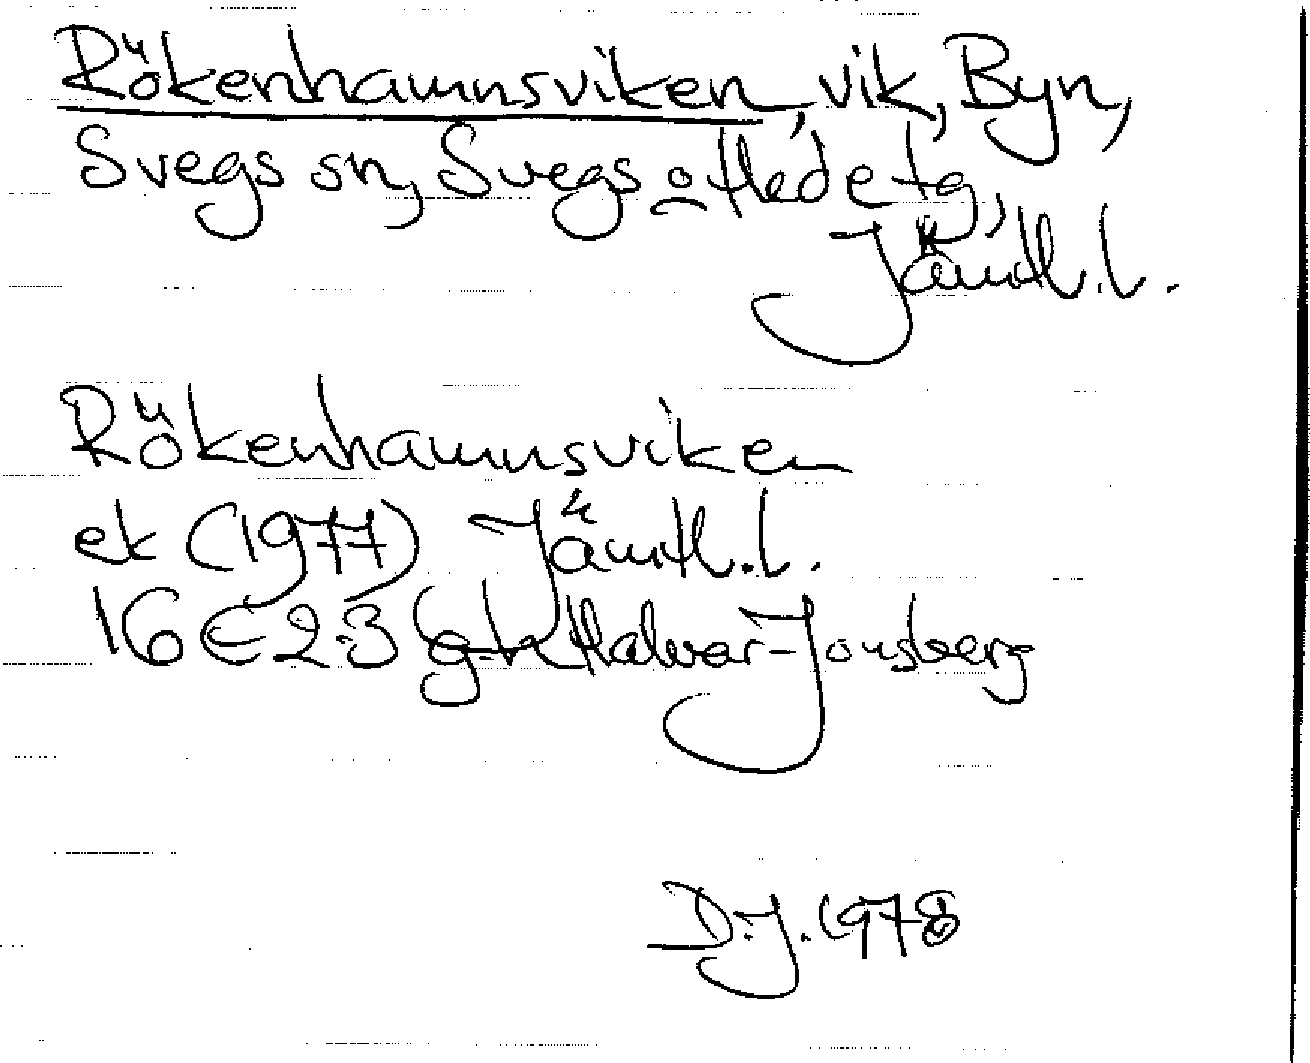 Rökenhamnsviken, vik, Byn,
Svegs sn, Svegs o Hede tg,
Jämtl.l.
Rökenhamnsviken
ek (1977) Jämtl.l.
16 E 2-3 g-h Halvar-Jonsberg
D.J. 1978